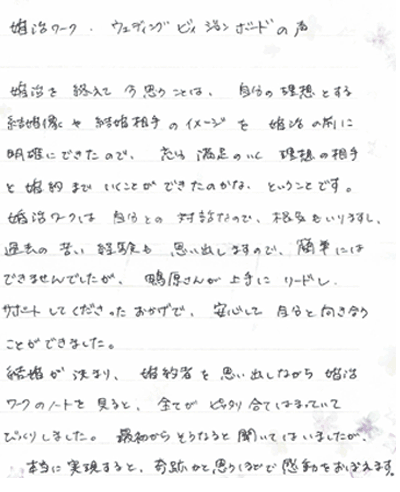 婚活ワーク・ウェディングビィジョンボードの声
婚活を終えて今思うことは、自分の理想とする
結婚像や結婚相手のイメージを婚活の前に
明確にできたので、私は満足のいく理想の相手
と婚約までいくことができたのかな、ということです。
婚活ワークは自分との対話なので、根気もいりますし、
過去の苦い経験も思い出しますので、簡単には
できませんでしたが、鴨原さんが上手にリードし、
サポートしてくださったおかげで、安心して自分と向き合う
ことができました。
結婚が決まり、婚約者を思い出しながら婚活
ワークのノートを見ると、全てがピッタリ合てはまっていて
びっくりしました。最初からそうなると聞いてはいましたが、
本当に実現すると、奇跡かと思うくらいで感動をおぼえます。